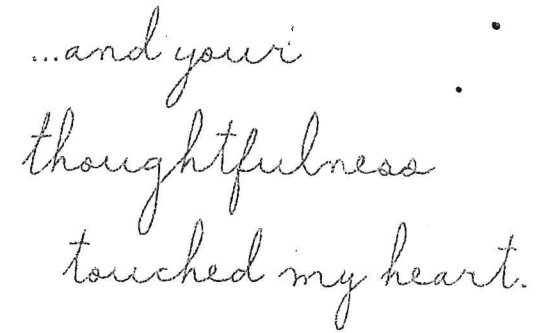 ...and your
thoughtfulness
touched my heart.